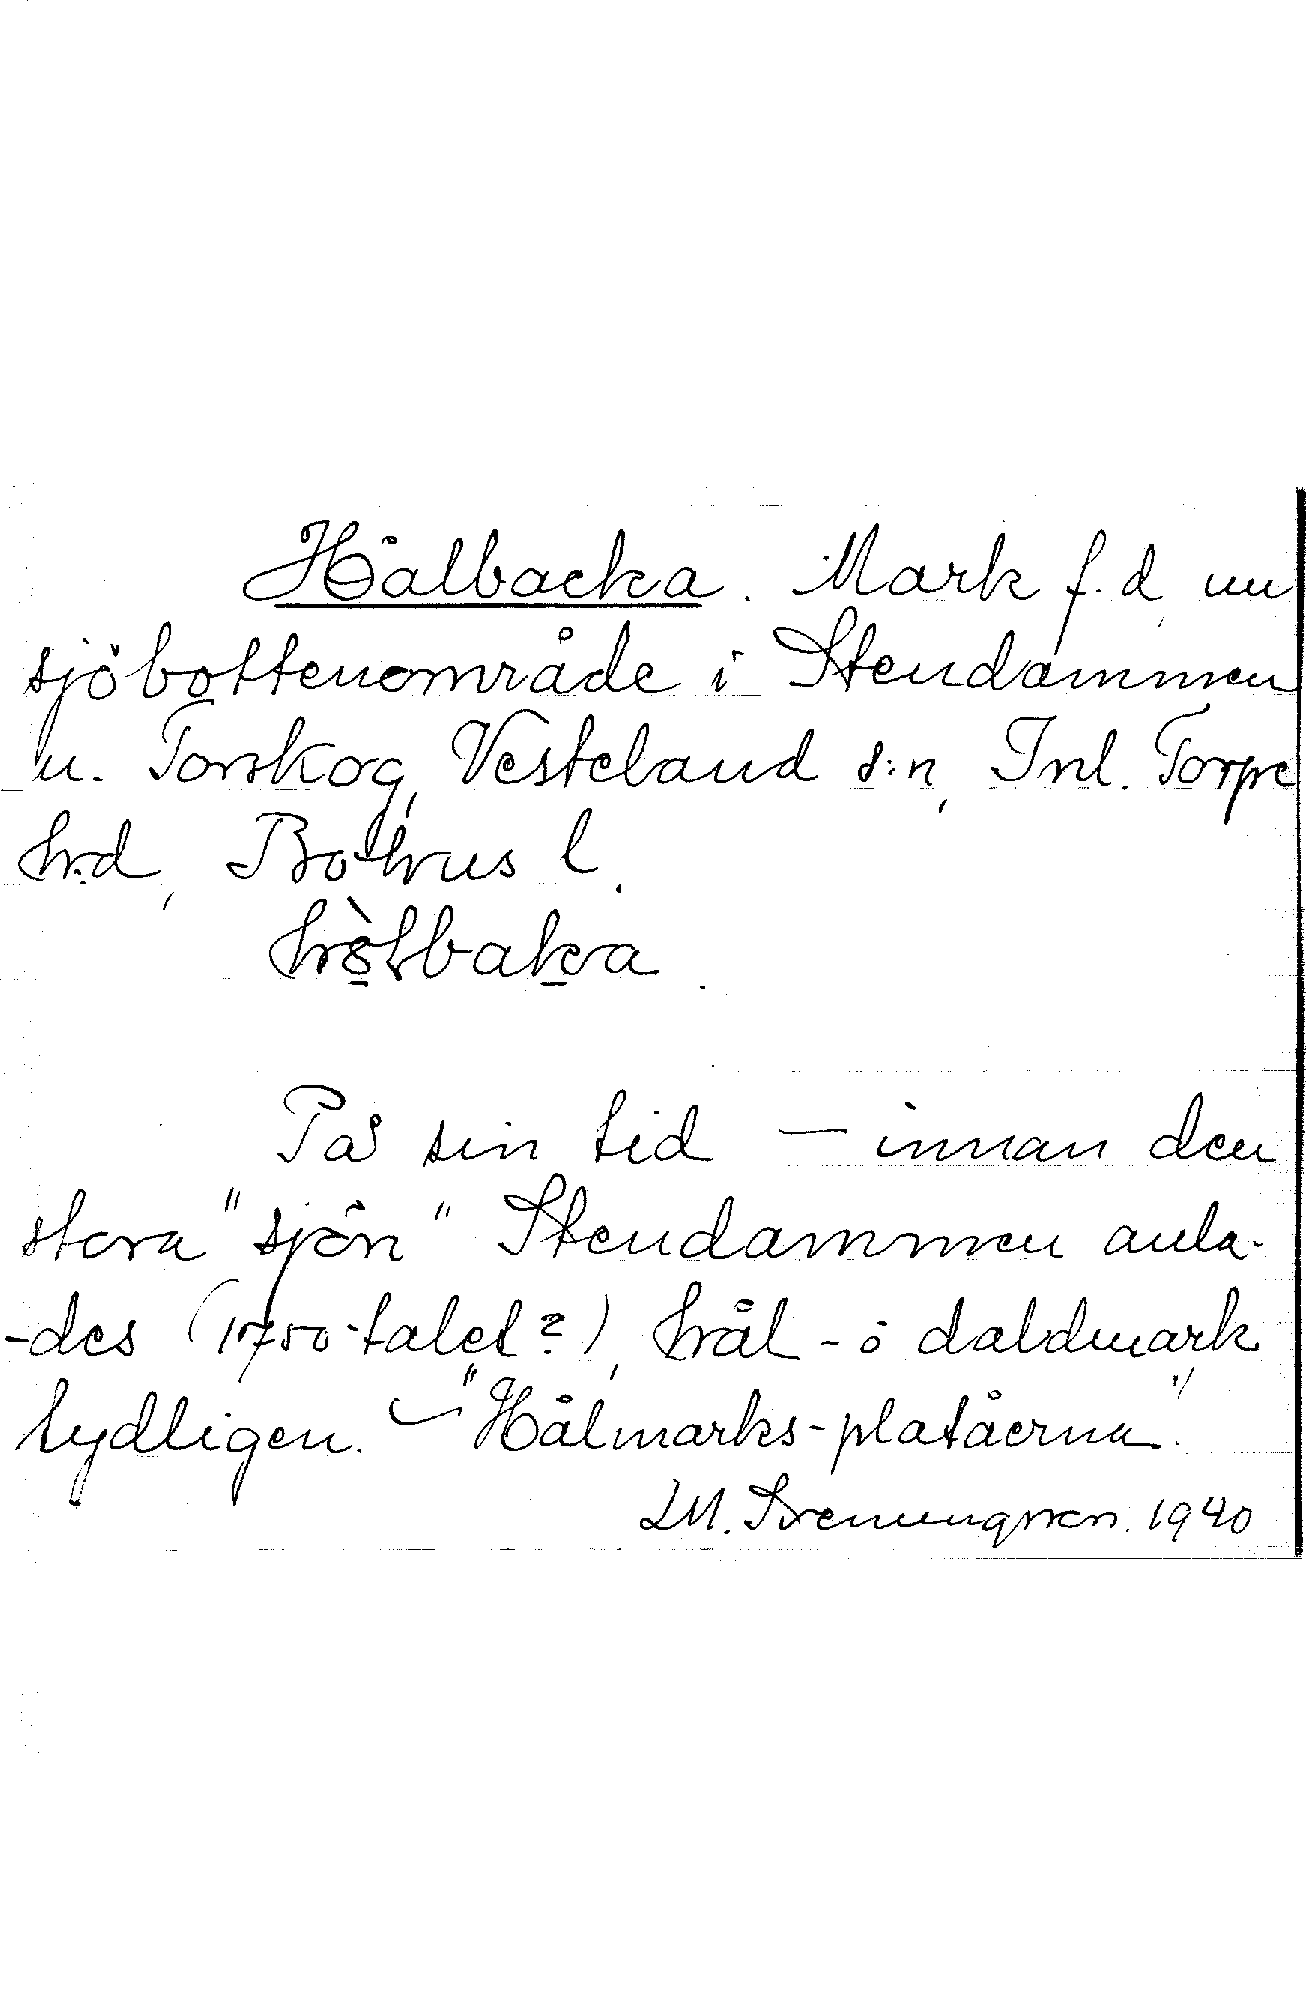 Hålbacka. Mark f.d., nu
sjöbottenområde i Stendammen
u. Torskog, Vesteland s:n, Inl. Torpe
hrd, Bohus l.
På sin tid — innan den
stora "sjön" Stendammen anla-
-des (1750-talet?), hål- o daldmark
tydligen. "Hålmarks-platåerna".
LM. Svenungsson. 1940